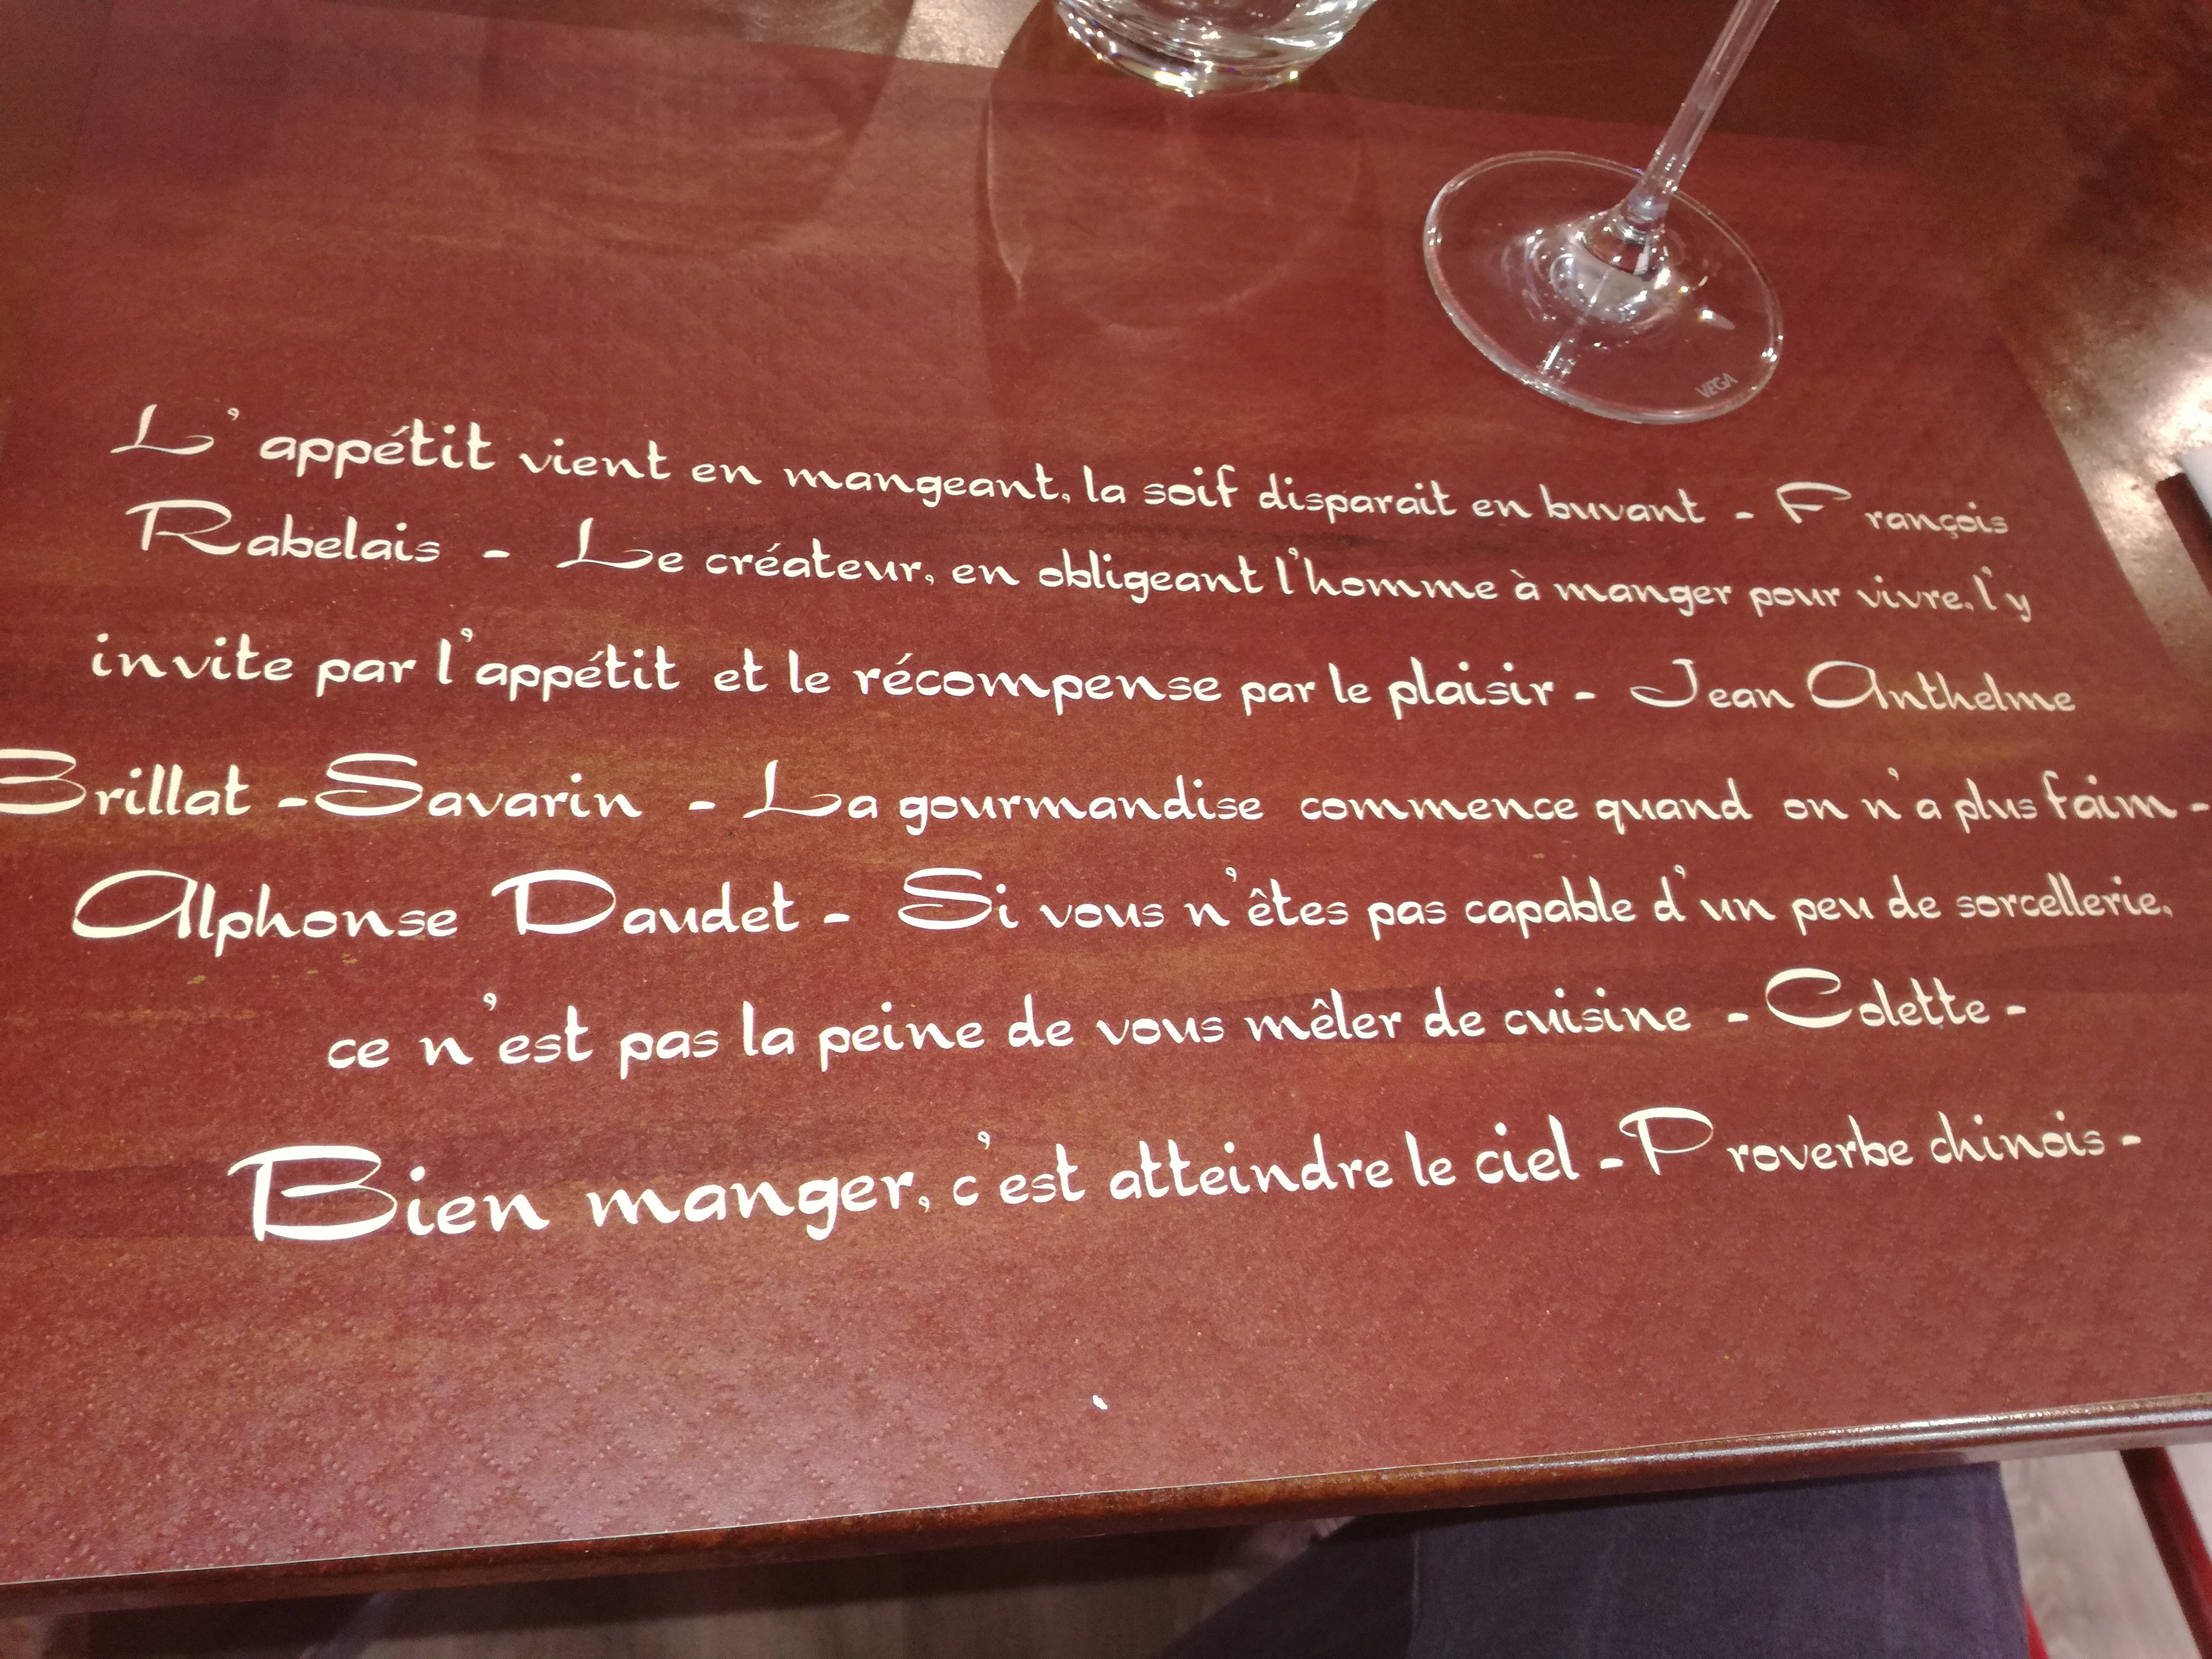 VEGA
L'appétit vient en mangeant, la soif disparait en buvant - François
Rabelais - Le créateur, en obligeant l'homme à manger pour vivre, l'y
invite par l'appétit et le récompense par le plaisir - Jean Anthelme
Brillat - Savarin - La gourmandise commence quand on n'a plus faim -
Alphonse Daudet - Si vous n'êtes pas capable d'un peu de sorcellerie,
ce n'est pas la peine de vous mêler de cuisine - Colette -
Bien manger, c'est atteindre le ciel - Proverbe chinois -